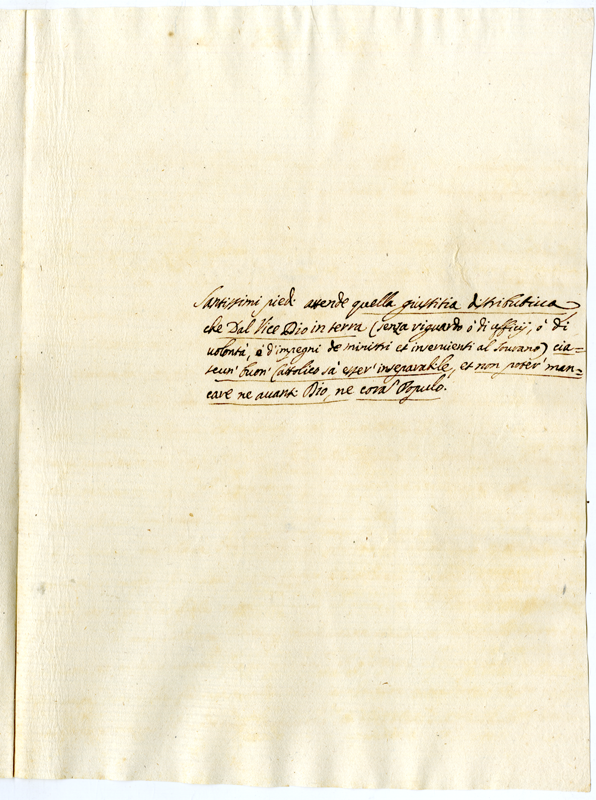 Santissimi piedi attende quella giustitia distributiua
che dal Vice Dio in terra (senza riguardo ó di ufficij, ó di
uolontà, é d'impegni de ministri et inseruienti al Sourano) cia=
scun' buon' Cattolico sà esser' inseparabile, et non poter' man=
care ne auanti Dio, ne corã Populo.